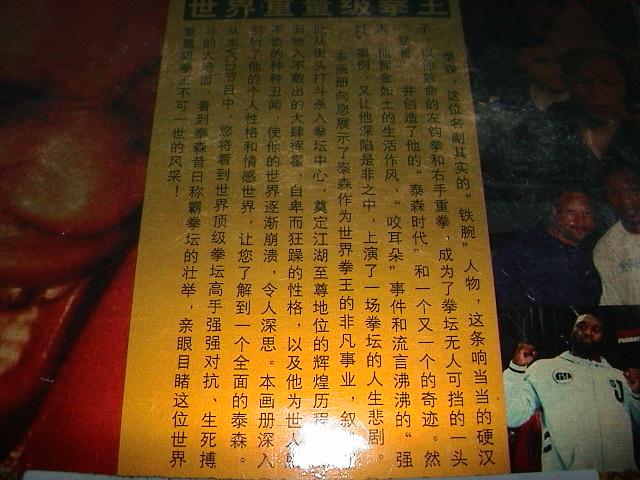 世界重量级拳王
泰森，这位名副其实的“铁腕”人物，这条响当当的硬汉
子，以他致命的左钩拳和右手重拳，成为了拳坛无人可挡的一头
并创造了他的“泰森时代”和一个又一个的奇迹。然
而，他挥金如土的生活作风、“咬耳朵”事件和流言沸沸的“强
奸”案例，又让他深陷是非之中，上演了一场拳坛的人生悲剧。
本画册向您展示了泰森作为世界拳王的非凡事业，叙
他从街头打斗杀入拳坛中心，奠定江湖至尊地位的辉煌历程
而他入不敷出的大肆挥霍、自卑而狂躁的性格，以及他为世人
不齿的种种丑闻，使他的世界逐渐崩溃，令人深思。本画册深入
剖析了他的个人性格和情感世界，让您了解到一个全面的泰森。
从本VCD节目中，您将看到世界顶级拳坛高手强强对抗、生死搏
斗的大场面，看到泰森昔日称霸拳坛的壮举，亲眼目睹这位世界
重量级拳王不可一世的风采！